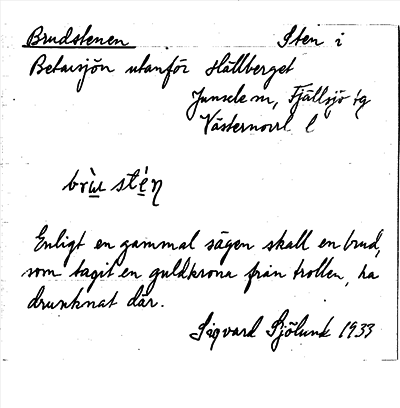 Brudstenen Sten i
Betarsjön utanför Hällberget
Junsele sn, Fjällsjö tg
Västernorrl l
brù̱ sté̱n
Enligt en gammal sägen skall en brud,
som tagit en guldkrona från trollen, ha
drunknat där.
Sigvard Sjölund 1933